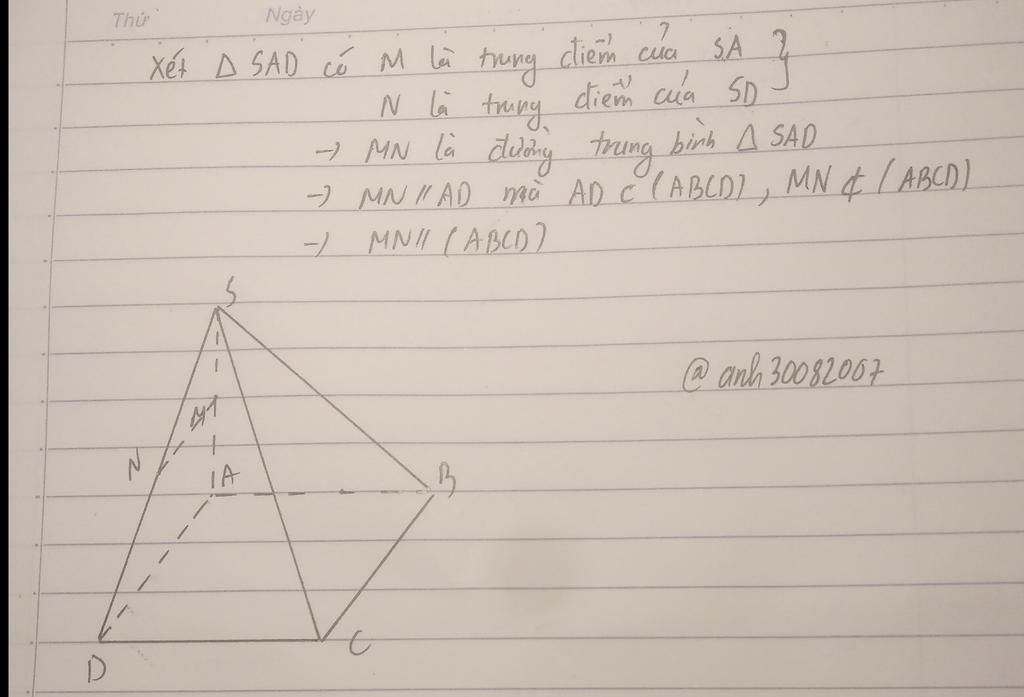 Thứ Ngày
Xét Δ SAD có M là trung điểm của SA }
N là trung điểm của SD
→ MN là đường trung bình Δ SAD
→ MN // AD mà AD ⊂ (ABCD), MN ⊄ (ABCD)
→ MN // (ABCD)
S
@anh30082007
M
N
A
B
C
D